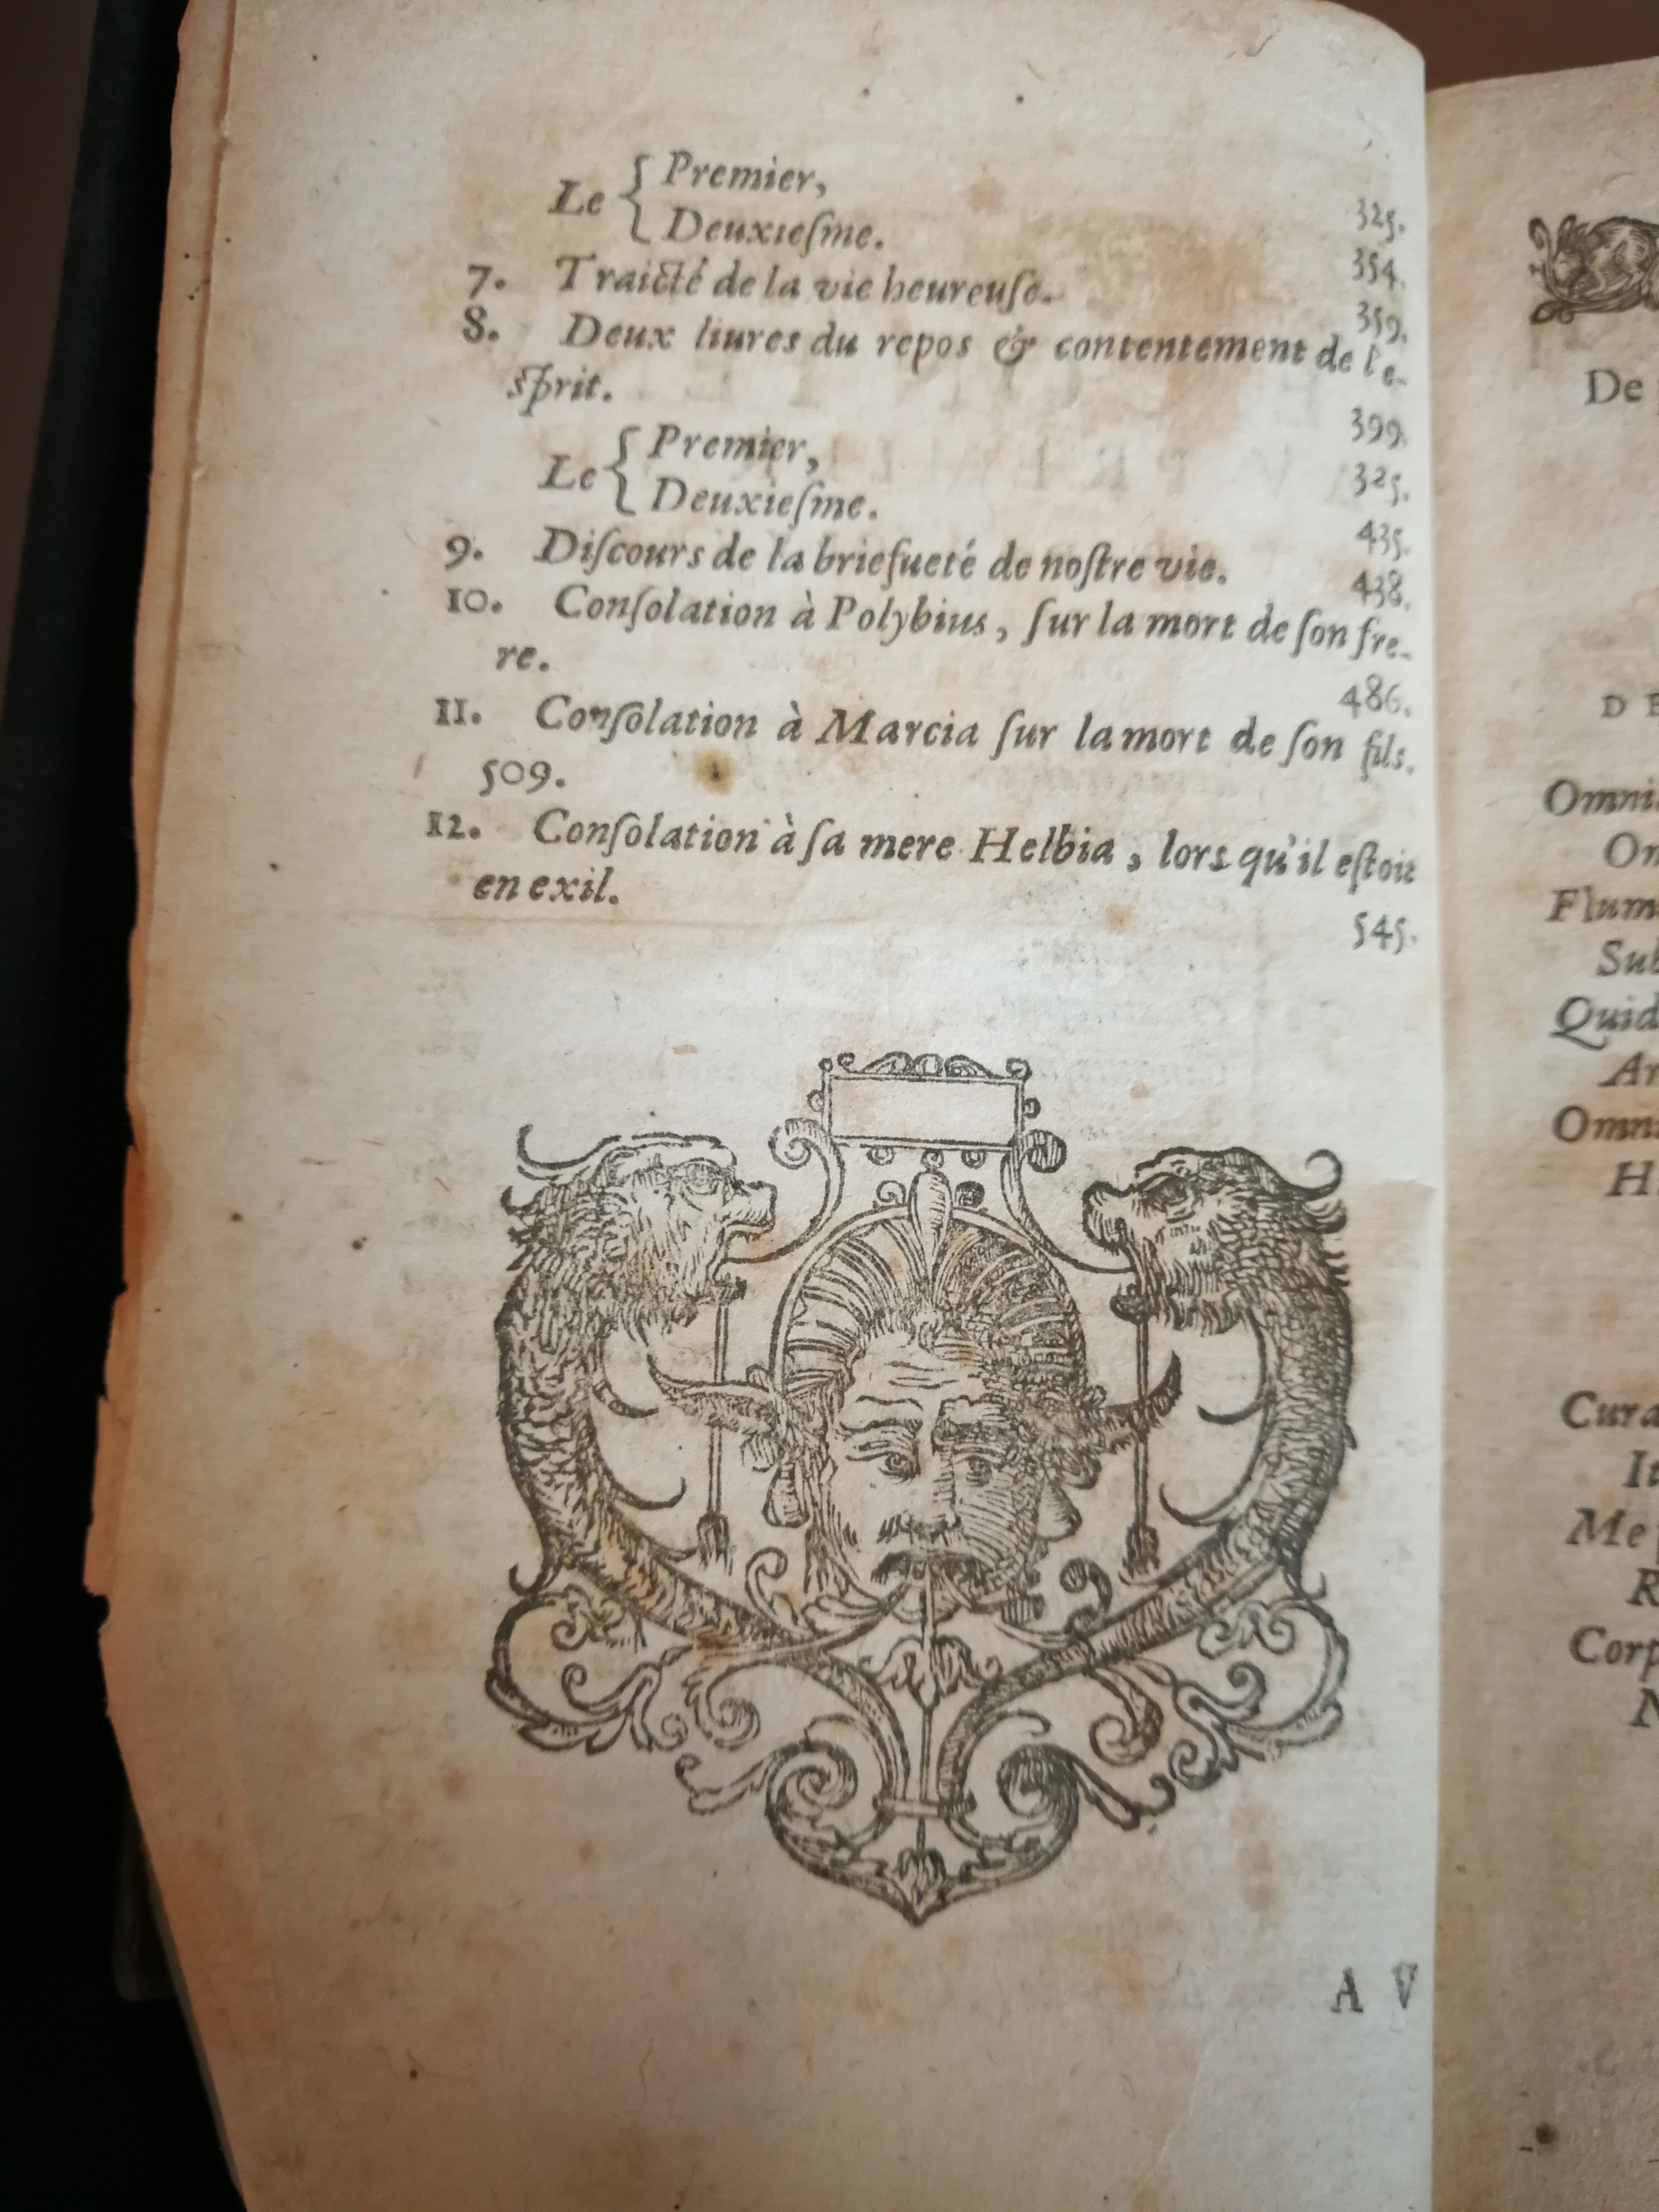 Le { Premier, 325.
Deuxieſme. 354.
7. Traicté de la vie heureuſe. 359.
8. Deux liures du repos & contentement de l'e-
ſprit. 399.
Le { Premier, 325.
Deuxieſme. 435.
9. Diſcours de la briefueté de noſtre vie. 438.
10. Conſolation à Polybius, ſur la mort de ſon fre-
re. 486.
11. Conſolation à Marcia ſur la mort de ſon fils.
509.
12. Conſolation à ſa mere Helbia, lors qu'il eſtoit
en exil. 545.
A V
De
DE
Omni
On
Flum
Sub
Quid
Ar
Omn
H
Cura
It
Me
R
Corp
N